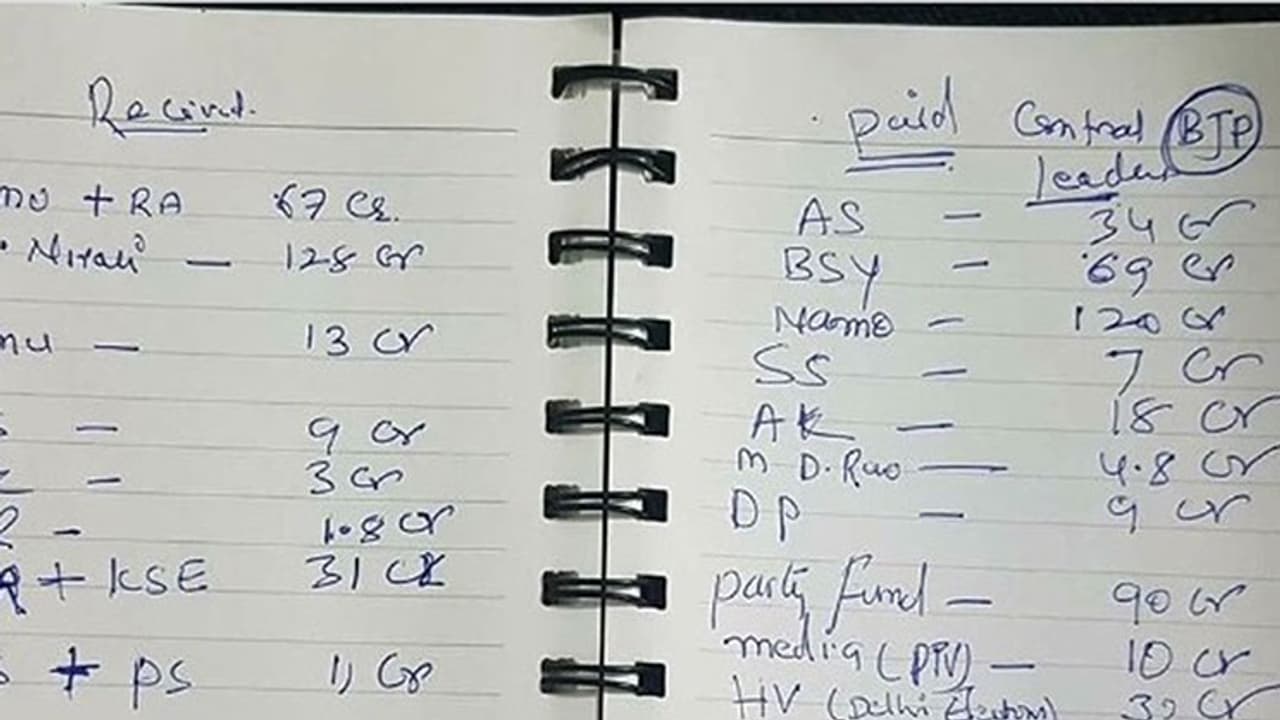 Received.
+ RA 67 Cr.
Nirani — 128 Cr
— 13 Cr
— 9 Cr
— 3 Cr
— 1.8 Cr
+ KSE 31 Cr
+ PS 11 Cr
paid Central BJP
leaders
AS — 34 Cr
BSY — 69 Cr
Namo — 120 Cr
SS — 7 Cr
AK — 18 Cr
M D. Rao — 4.8 Cr
DP — 9 Cr
party fund — 90 Cr
media (PTV) — 10 Cr
HV (Delhi Election) Cr